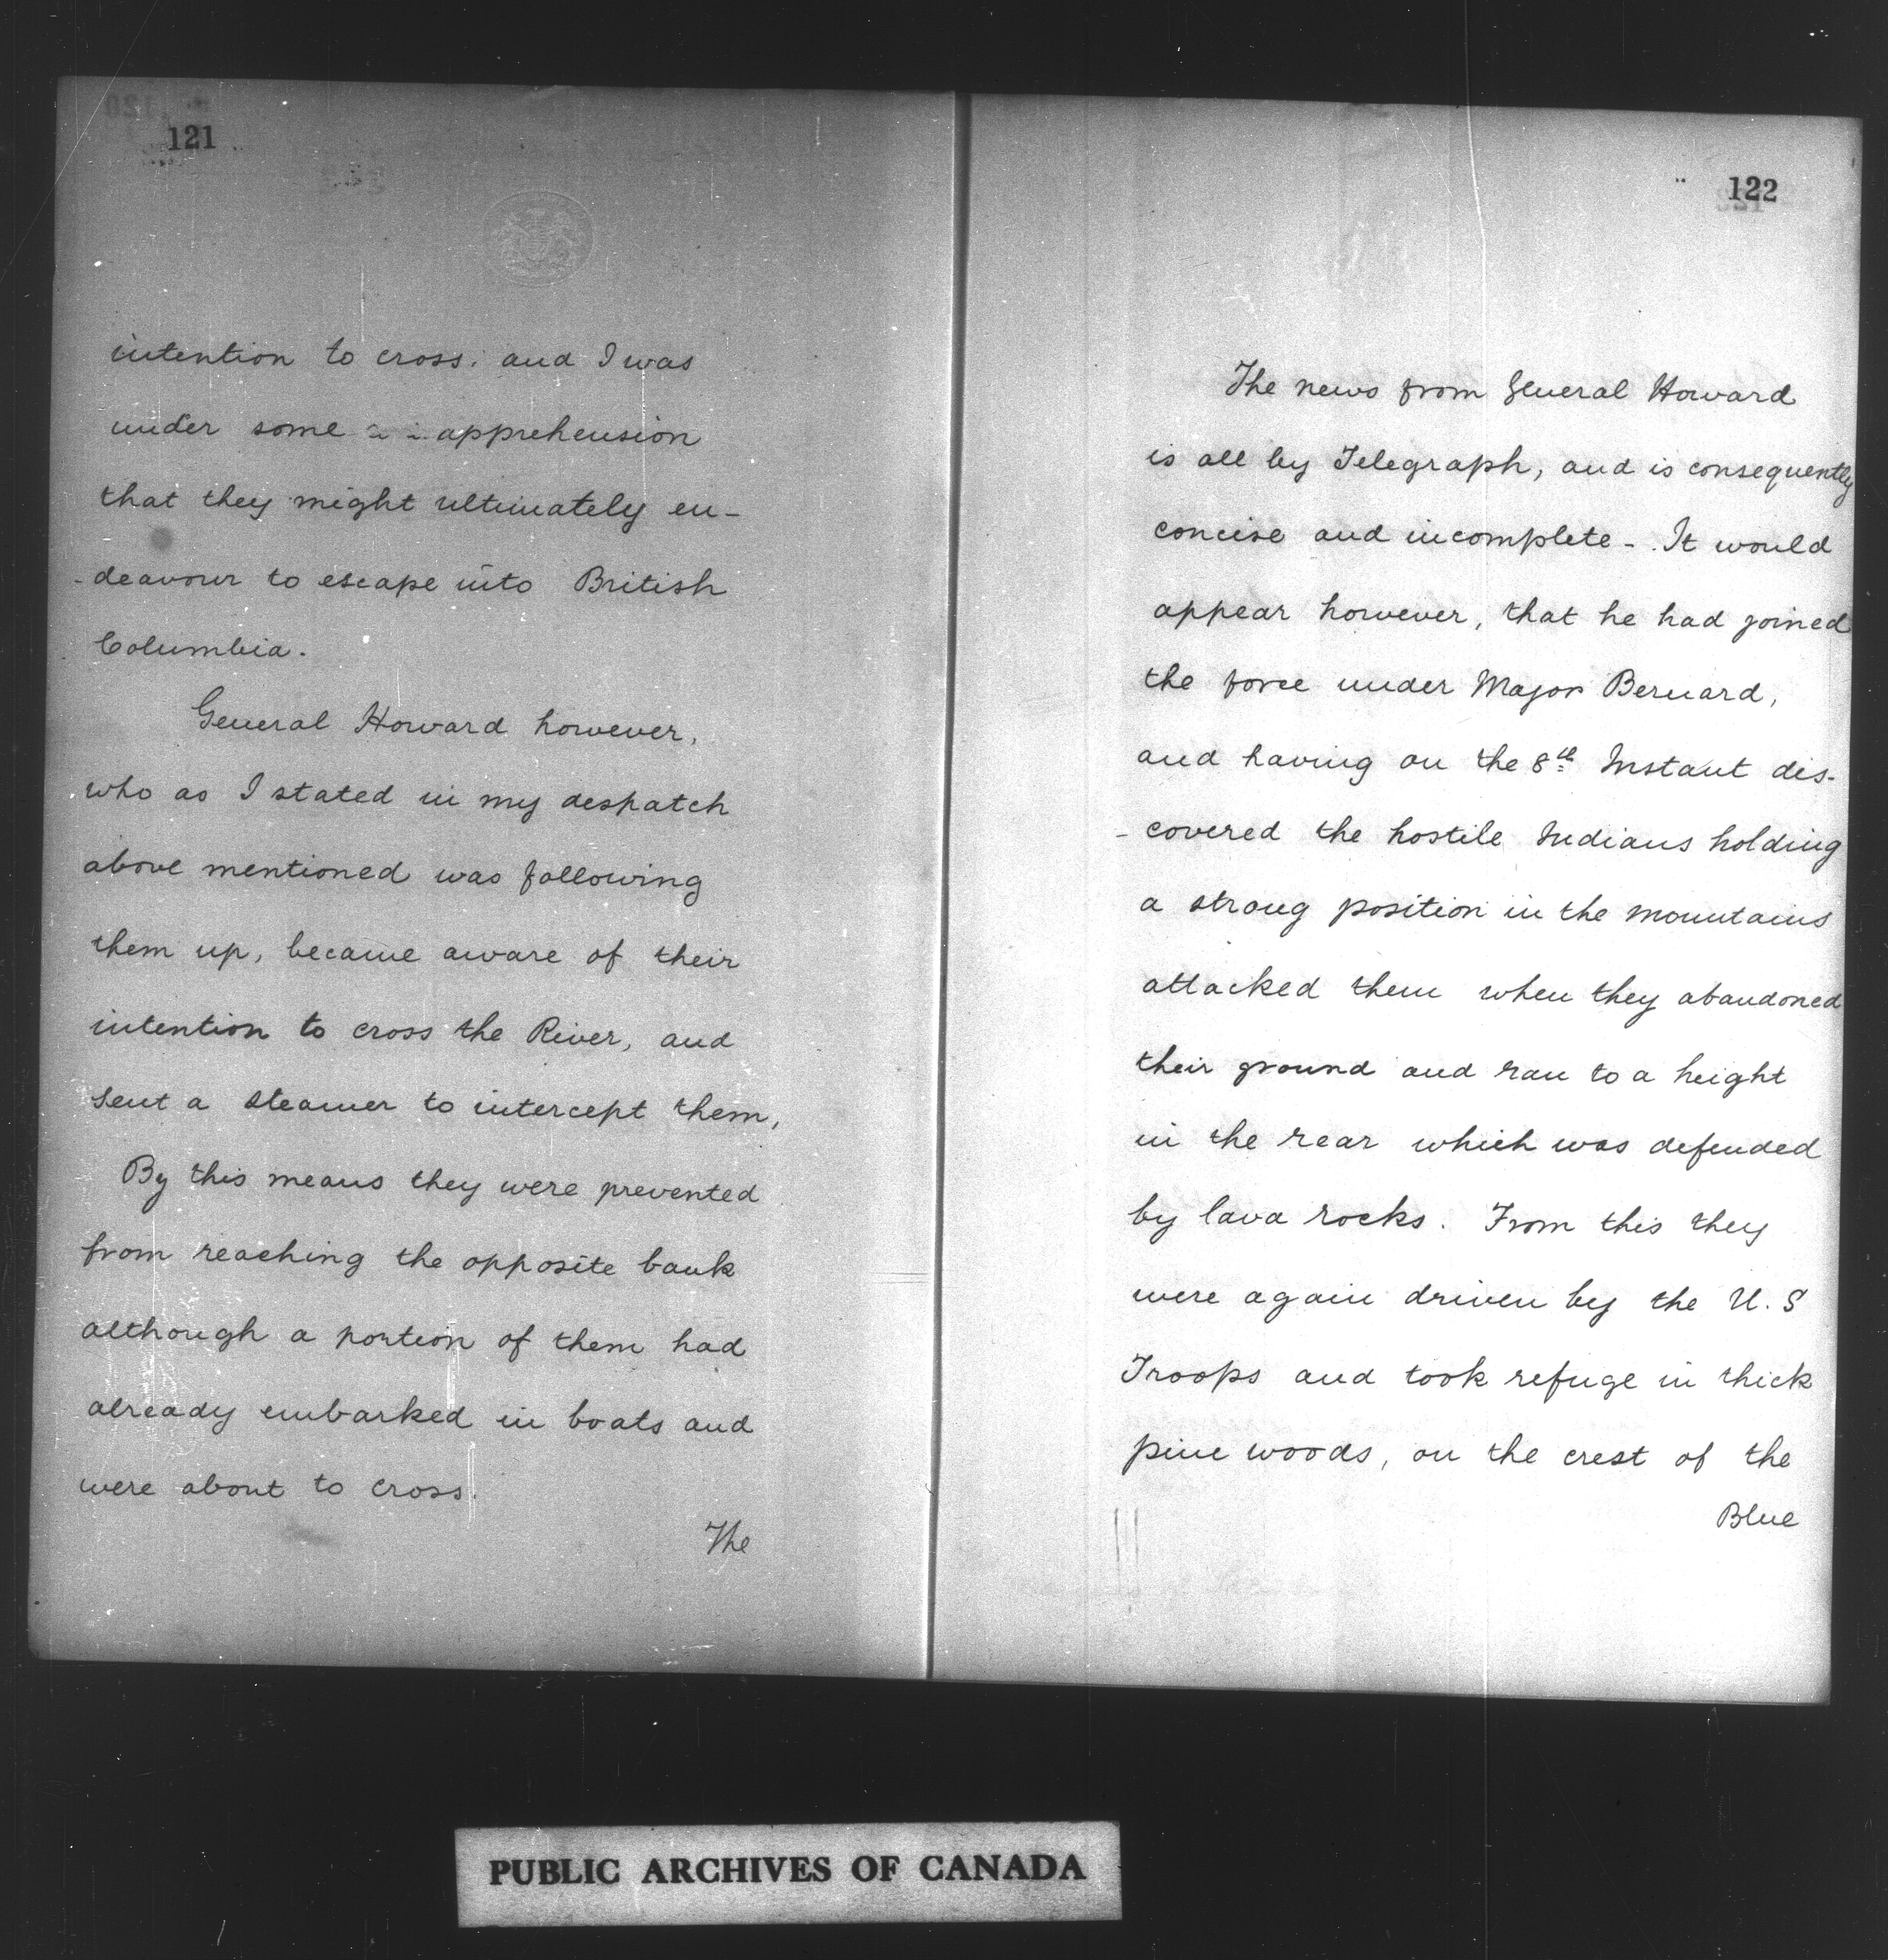 121
intention to cross. and I was
under some apprehension
that they might ultimately en-
-deavour to escape into British
Columbia.
General Howard however,
who as I stated in my despatch
above mentioned was following
them up, became aware of their
intention to cross the River, and
sent a steamer to intercept them,
By this means they were prevented
from reaching the opposite bank
although a portion of them had
already embarked in boats and
were about to cross.
The
122
The news from General Howard
is all by Telegraph, and is consequently
concise and incomplete - It would
appear however, that he had joined
the force under Major Bernard,
and having on the 8th Instant dis-
-covered the hostile Indians holding
a strong position in the mountains
attacked them when they abandoned
their ground and ran to a height
in the rear which was defended
by lava rocks. From this they
were again driven by the U.S
Troops and took refuge in thick
pine woods, on the crest of the
Blue
PUBLIC ARCHIVES OF CANADA